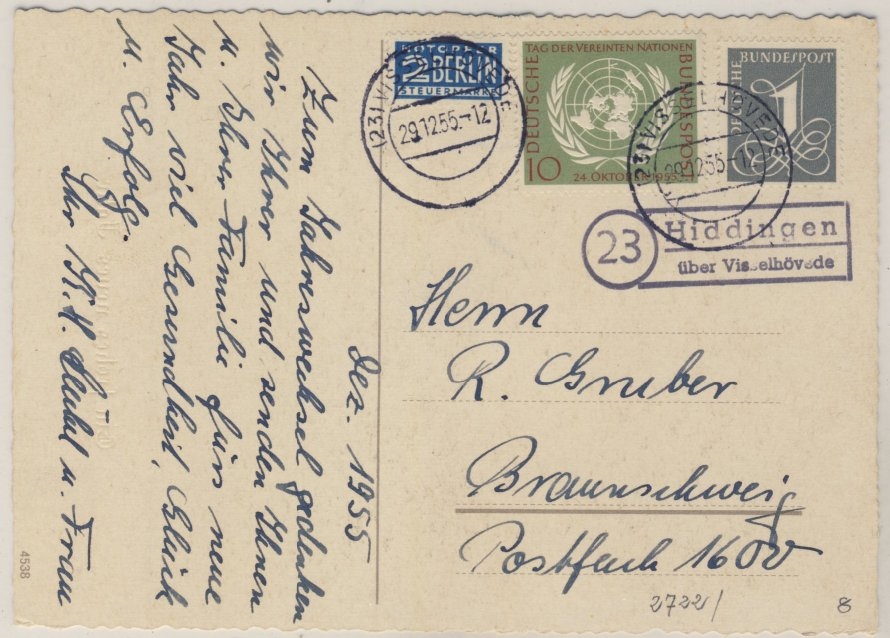 Dez. 1955
Zum Jahreswechsel gedenken
wir Ihrer und senden Ihnen
u. Ihrer Familie fürs neue
Jahr viel Gesundheit, Glück
u. Erfolg.
Ihr K.H. u. Frau
4538
NOTOPFER
2 BERLIN
STEUERMARKE
(23) VISSELHÖVEDE
29.12.55.-12
TAG DER VEREINTEN NATIONEN
DEUTSCHE BUNDESPOST
10
24. OKTOBER 1955
DEUTSCHE BUNDESPOST
1
(23) VISSELHÖVEDE
29.12.55.-12
23
Hiddingen
über Visselhövede
Herrn
R. Gruber
Braunschweig
Postfach 1600
2722/
8